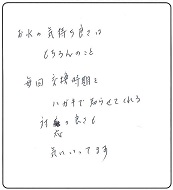 お水の気持ち良さは
もちろんのこと
毎回 交換時期を
ハガキで知らせてくれる
対応の良さも
気にいってます